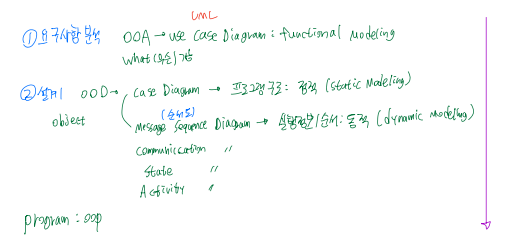 UML
① 요구사항 분석 OOA → use case Diagram : functional modeling
what (무슨) 기능
② 설계 OOD → Case Diagram → 프로그램 구조 : 정적 (static modeling)
(순서도)
object Message Sequence Diagram → 실행 절차/순서 : 동적 (dynamic modeling)
Communication 〃
State 〃
Activity 〃
program : oop